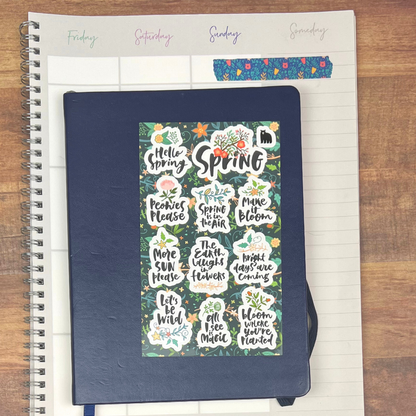 Friday Saturday Sunday Someday
Hello
Spring
SPRING
Peonies
Please
SPRING
is in the
AIR
Make
it
Bloom
More
SUN
Please
The
Earth
laughs
in
flowers
bright
days are
coming
Let's
be
Wild
all
I see
is
Magic
bloom
WHERE
YOU'RE
PLANTED